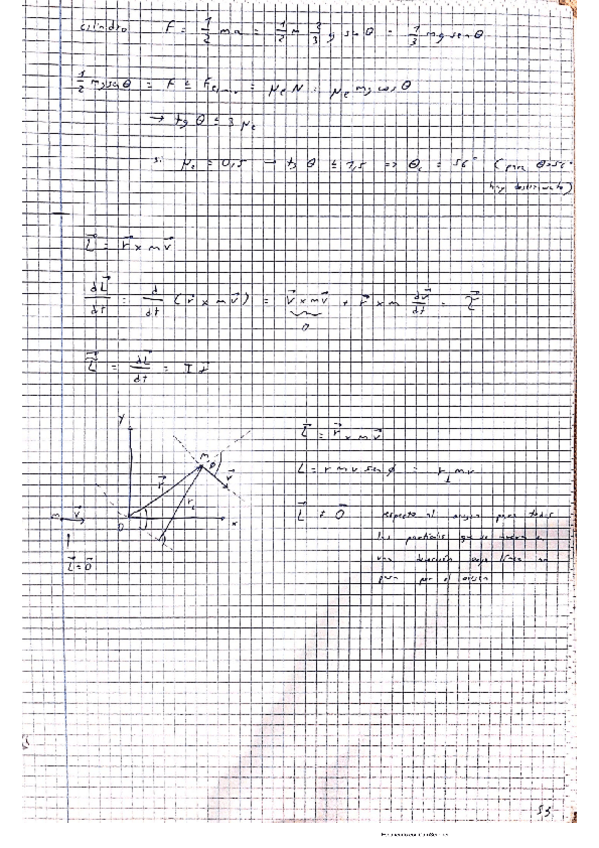 cilindro F = 1/2 ma = 1/2 m 2/3 g sen θ = 1/3 mg sen θ
1/2 mg sen θ = F ≤ Fe,max = μe N = μe mg cos θ
→ tg θ ≤ 3 μe
si μe = 0,5 → tg θ ≤ 1,5 ⇒ θc = 56° (para θ>56°
hay deslizamiento)
L⃗ = r⃗ × mv⃗
dL⃗/dt = d/dt (r⃗ × mv⃗) = v⃗ × mv⃗ + r⃗ × m dv⃗/dt = τ⃗
0
τ⃗ = dL⃗/dt = I
y
L⃗ = r⃗ × mv⃗
m φ
v⃗
r⃗
L = r m v sen φ = r⊥ m v
r⊥
m v⃗
O
x
L⃗ ≠ 0⃗ respecto al origen para todas
las partículas que se mueven en
una dirección cuya línea no
pasa por el origen
L⃗ = 0⃗
53